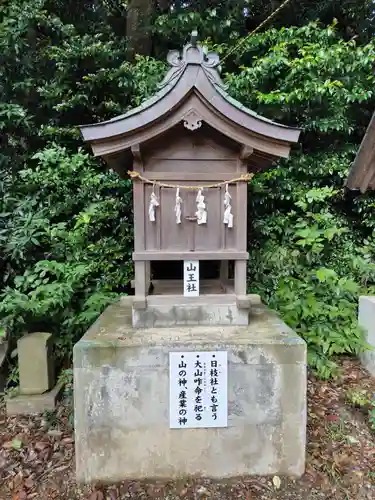 山王社
・日枝社とも言う
・大山咋命を祀る
・山の神、産業の神